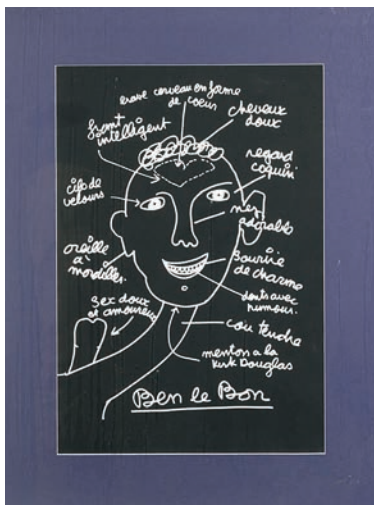 cerveau en forme
de coeur
cheveux
doux
front
intelligent
regard
coquin
cils de
velours
nez
adorable
oreille
à
mordiller.
sourire
de charme
dents avec
humour.
sex doux
et amoureux
cou tendre
menton a la
Kirk Douglas
Ben le Bon